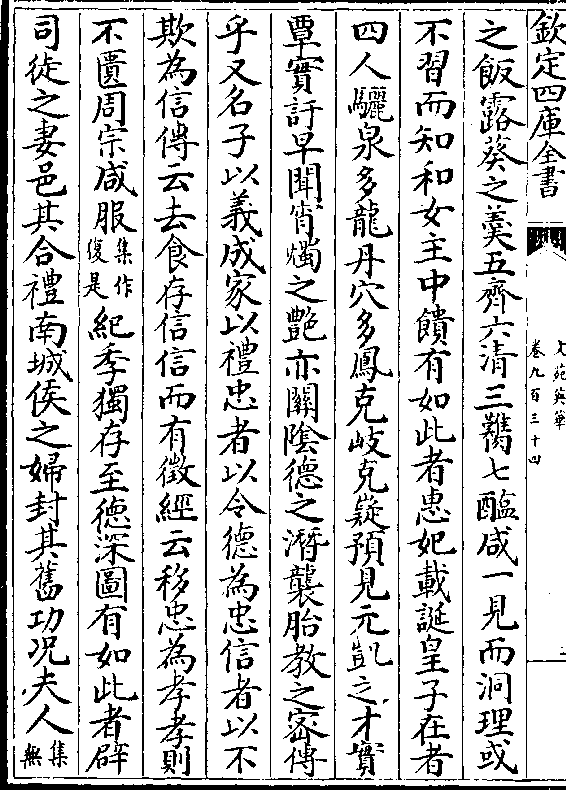 欽定四庫全書
文苑英華
卷九百三十四
二
之飯露葵之羹五齊六清三臡七醢咸一見而洞理或
不習而知和女主中饋有如此者惠妃載誕皇子在者
四人驪泉多龍丹穴多鳳克岐克嶷預見元凱之才實
覃實訏早聞宵燭之艷亦關陰德之潛襲胎教之密傳
乎又名子以義成家以禮忠者以令德為忠信者以不
欺為信傳云去食存信信而有徵經云移忠為孝孝則
不匱周宗咸服集作復是紀季獨存至德深圖有如此者辟
司徒之妻邑其合禮南城侯之婦封其舊功况夫人集無